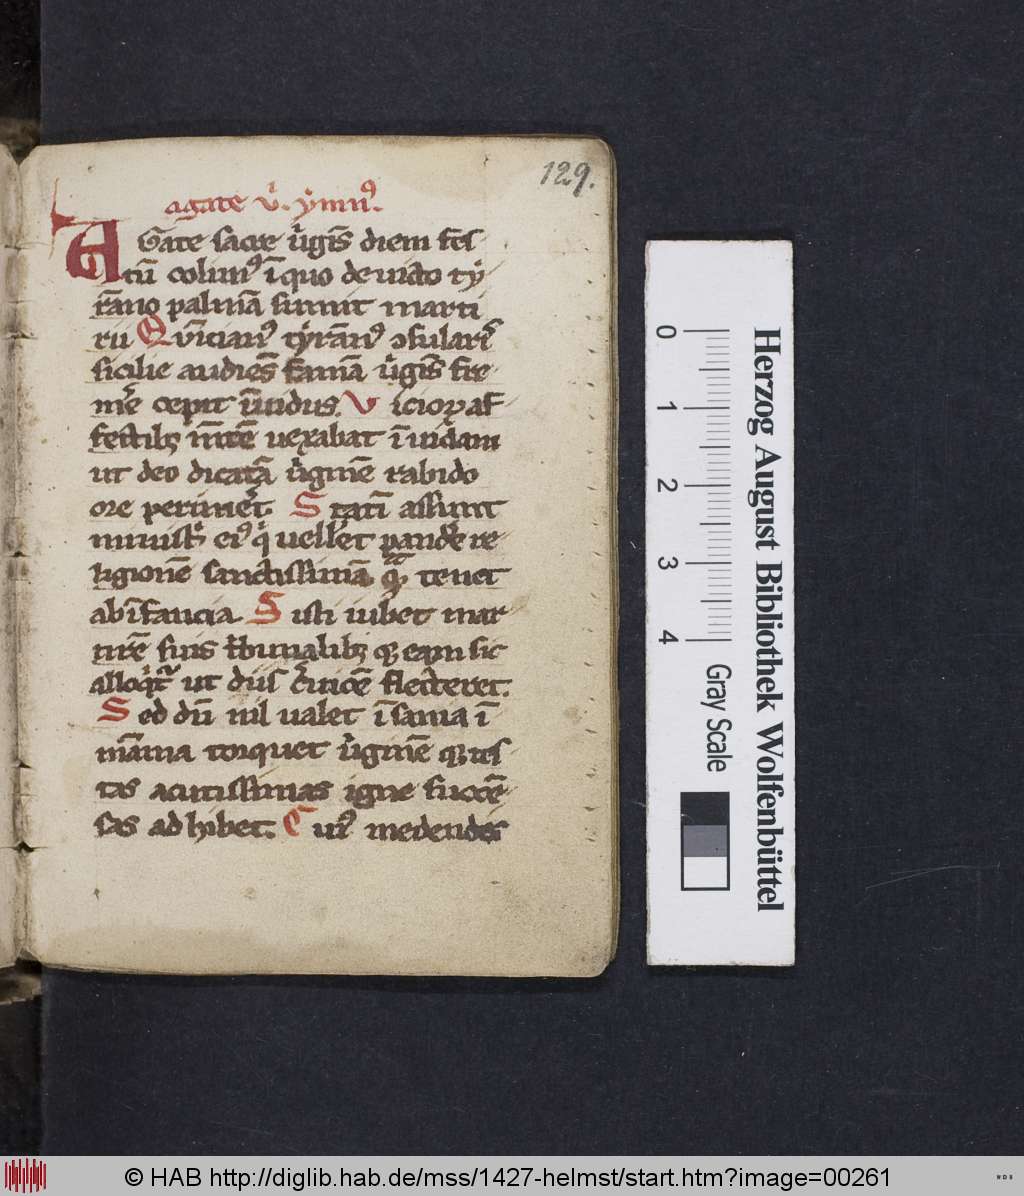 129.
agate v̓. ẏmnꝰ.
AGate sacre v̓gīs diem fes
tū colimꝰ ī quo deuicto tẏ
rāno palmā sumit marti
rii Qvīcianꝰ tẏrānꝰ ꝯsularis
sicilie audiēs famā v̓gīs fre
mē cepit īuidus. V icioꝝ af
fectibꝫ mētē uexabat ī uidam
ut deo dicatā v̓ginē rabido
ore perimēt. S tatī assunt
ministꝰ eiꝰ q̇ uellet pandere re
ligionē sanctissimā quā tenet
ab īfancia. S isti iubet mar
tirē suis tͥbunalibꝫ qꝫ eam sic
alloqͥt᷑ ut diis c̓uicē flecteret.
S ed dū nil ualet ī sania ī
māma torquet v̓ginē qꝫ tes
tas acutissimas igne succē
sas adhibet. C uiꝰ medendis
0 1 2 3 4
Herzog August Bibliothek Wolfenbüttel
Gray Scale
© HAB http://diglib.hab.de/mss/1427-helmst/start.htm?image=00261